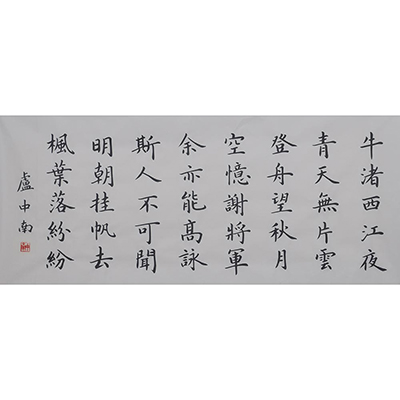 牛渚西江夜
青天無片雲
登舟望秋月
空憶謝將軍
余亦能高詠
斯人不可聞
明朝挂帆去
楓葉落紛紛
盧中南